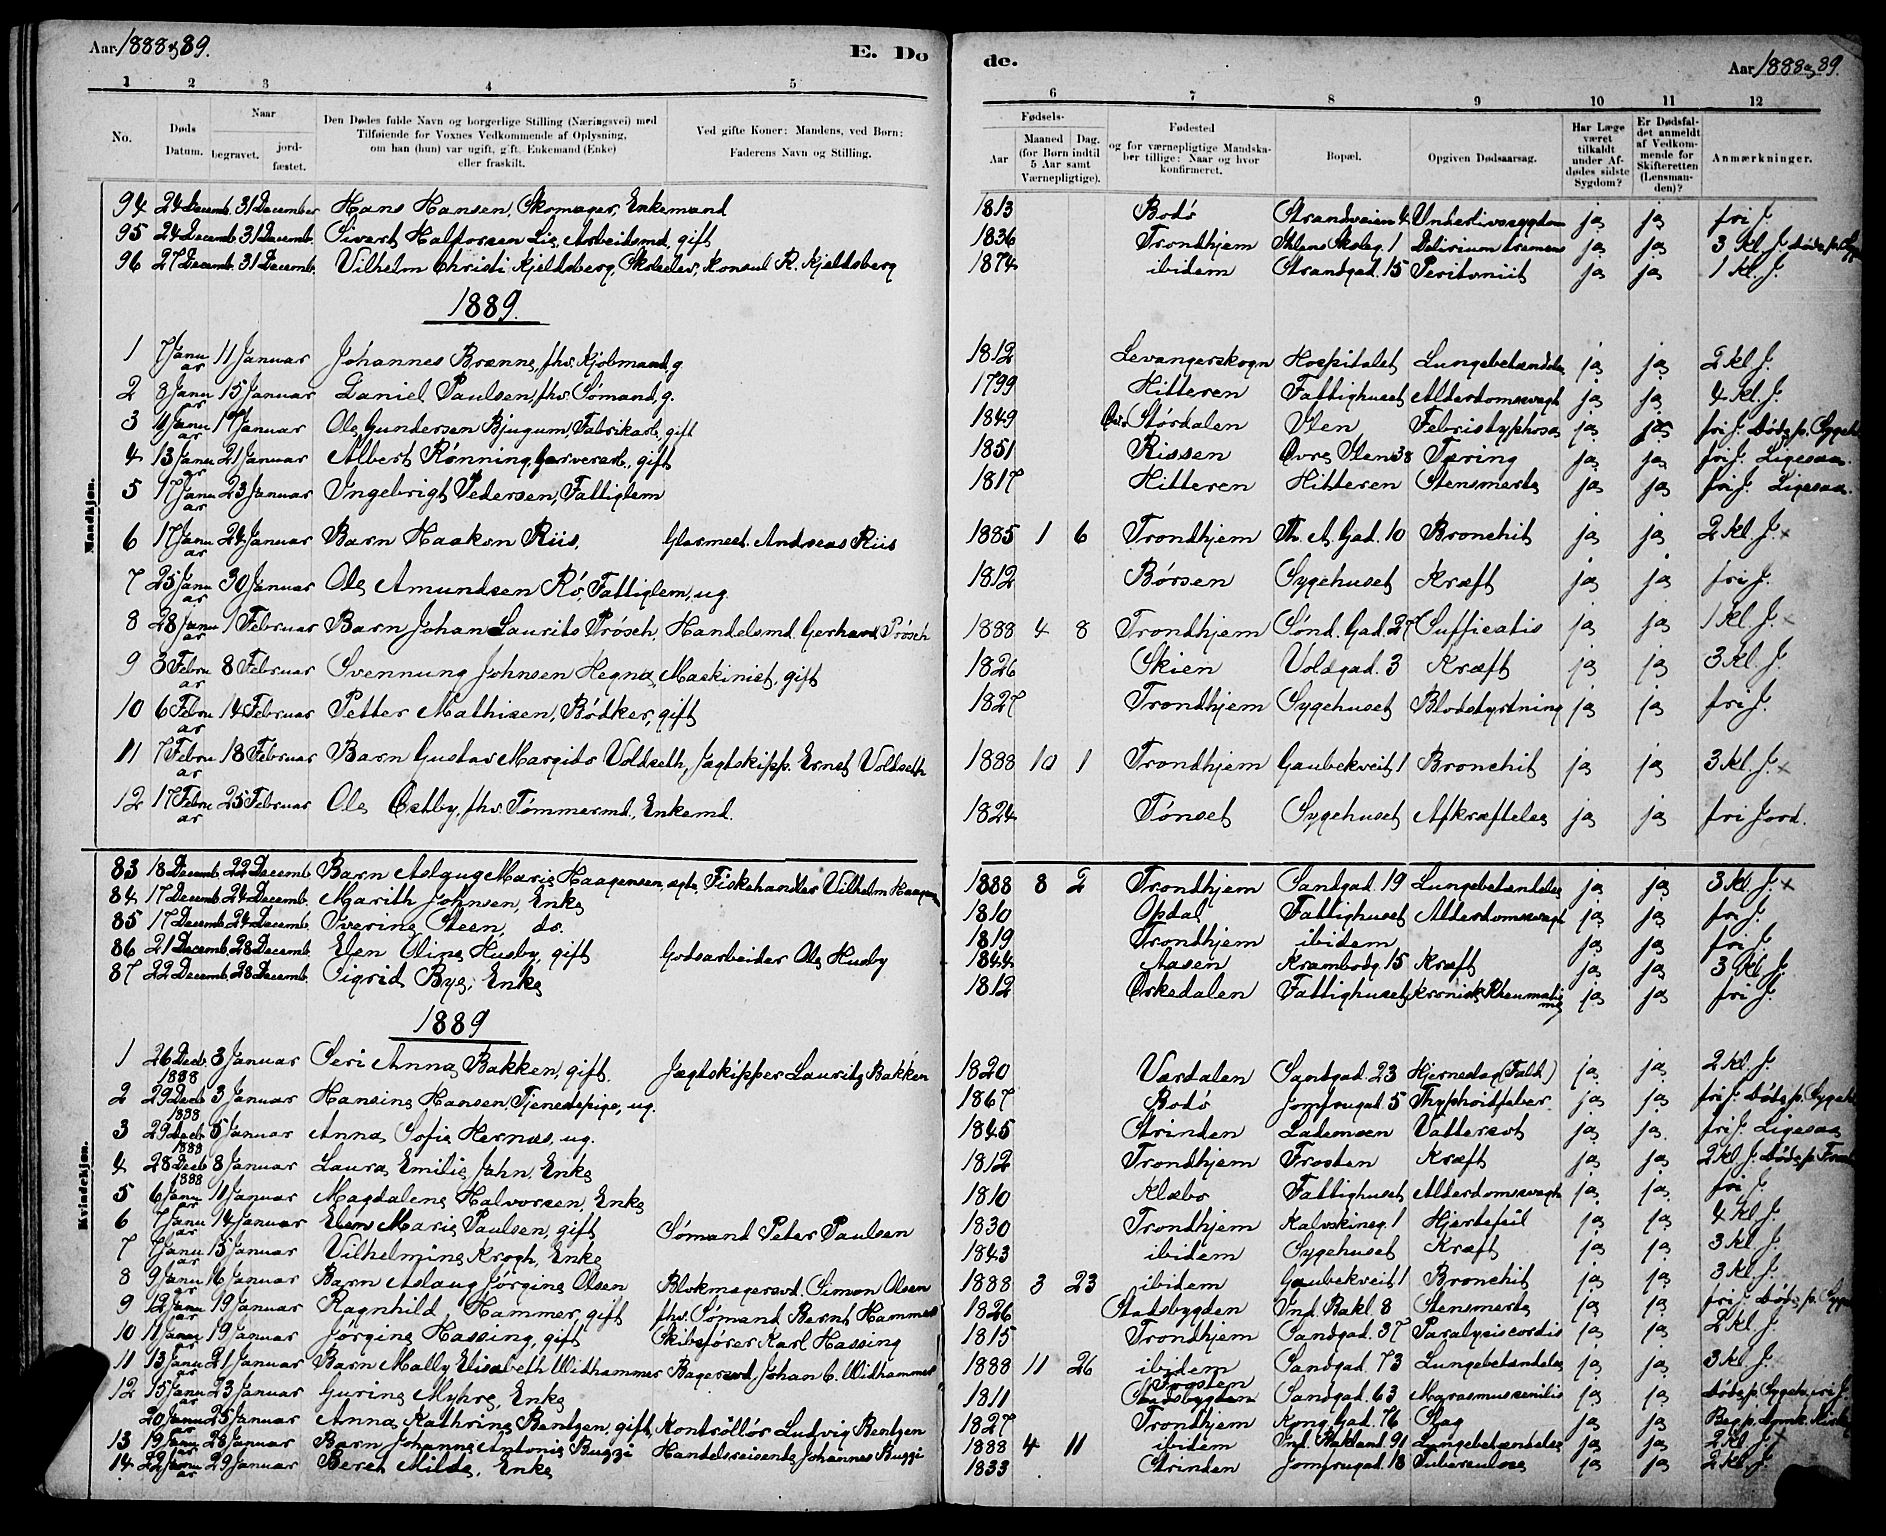 Aar 1888 & 89.
E. Dø
de.
Aar 1888 & 89.
1 2 3 4 5 6 7 8 9 10 11 12
No.
Døds Datum.
Naar
begravet.
jord-fæstet.
Den Dødes fulde Navn og borgerlige Stilling (Næringsvei) med
Tilføiende for Voxnes Vedkommende af Oplysning,
om han (hun) var ugift, gift, Enkemand (Enke)
eller fraskilt.
Ved gifte Koner: Mandens, ved Børn:
Faderens Navn og Stilling.
Fødsels-
Aar
Maaned Dag.
(for Børn indtil
5 Aar samt
Værnepligtige).
Fødested
og for værnepligtige Mandska-
ber tillige: Naar og hvor
konfirmeret.
Bopæl.
Opgiven Dødsaarsag.
Har Læge
været
tilkaldt
under Af-
dødes sidste
Sygdom?
Er Dødsfal-
det anmeldt
af Vedkom-
mende for
Skifteretten
(Lensman-
den)?
Anmærkninger.
Mandkjøn.
94 24 Decemb. 31 December Hans Hansen, Skomager, Enkemand 1813 Bodø Strandveien 4 Underlivssygdom ja ja fri J.
95 24 Decemb. 31 Decemb. Sivert Halforsen Lie, Arbeidsmd, gift 1836 Trondhjem Ihlens Skoleg. 1 Delirium tremens ja ja 3 kl. J. Døde p. Syg
96 27 Decemb. 31 Decemb. Vilhelm Christi Kjeldsberg, Skoleelev, Konsul R. Kjeldsberg 1874 ibidem Strandgad. 15 Peritoniit ja ja 1 kl. J.
1889.
1 7 Januar 11 Januar Johannes Brænne, fhv. Kjøbmand, g. 1812 Levangerskogn Hospitalet Lungebetændelse ja ja 2 kl J.
2 8 Januar 15 Januar Daniel Paulsen, fhv. Sømand, g. 1799 Hitteren Fattighuset Alderdomssvagh ja ja 4 kl. J.
3 11 Januar 17 Januar Ole Gundersen Bjugum, Fabrikarb., gift 1849 Størdalen Ilen Febris typhosa ja ja fri J. Døde p. Sygeh
4 13 Januar 21 Januar Albert Rønning, Garverarb., gift 1851 Rissen Øvre Ilens 38 Tæring ja ja fri J. Ligesaa.
5 17 Januar 23 Januar Ingebrigt Pedersen, Fattiglem 1817 Hitteren Hitteren Stensmerte ja ja fri J. Ligesaa.
6 17 Januar 24 Januar Barn Haakon Riis, Glasmest. Andreas Riis 1885 1 6 Trondhjem Th. A. Gad. 10 Bronchit ja ja 2 kl. J. x
7 25 Januar 30 Januar Ole Amundsen Rø, Fattiglem, ug. 1812 Børsen Sygehuset Kræft ja ja fri J.
8 28 Januar 1 Februar Barn Johan Laurits Prøsch, Handelsmd. Gerhard Prøsch 1888 4 8 Trondhjem Sønd. Gad. 27 Sufficatio ja ja 1 kl. J. x
9 3 Februar 8 Februar Svennung Johnsen Hegna, Maskinist, gift 1826 Skien Voldgad. 3 Kræft ja ja 3 kl. J.
10 6 Februar 14 Februar Petter Mathisen, Bødker, gift 1827 Trondhjem Sygehuset Blodstyrtning ja ja fri J.
11 7 Februar 18 Februar Barn Gustav Margido Voldseth, Jægtskipp. Ernst Voldseth 1888 10 1 Trondhjem Gaubekveit 1 Bronchit ja ja 3 kl. J. x
12 17 Februar 25 Februar Ole Østby, fhv. Tømmermd., Enkemd. 1824 Tønset Sygehuset Afkræftelse ja ja fri Jord.
Kvindekjøn.
83 18 Decemb. 22 Decemb. Barn Aslaug Marie Haagensen, ægte, Fiskehandler Vilhelm Haagens 1888 8 2 Trondhjem Sandgad. 19 Lungebetændelse ja ja 3 kl. J. x
84 17 Decemb. 24 Decemb. Marith Johnsen, Enke 1810 Opdal Fattighuset Alderdomssvagh ja ja fri J.
85 17 Decemb. 24 Decemb. Iverine Steen, do. 1819 Trondhjem ibidem ja ja fri J.
86 21 Decemb. 28 Decemb. Elen Oline Husby, gift Godsarbeider Ole Husby 1844 Aasen Krambodg. 15 Kræft ja ja 3 kl. J.
87 22 Decemb. 28 Decemb. Sigrid Bye, Enke 1812 Ørkedalen Fattighuset Kronisk Rheumatisme ja ja fri J.
1889
1 26 Decb. 1888 3 Januar Seri Anna Bakken, gift. Jægtskipper Lauritz Bakken 1820 Værdalen Sandgad. 23 Hjerneslag (Fald) ja ja 2 kl. J.
2 29 Decb 1888 3 Januar Hansine Hansen, Tjenestepige, ug. 1867 Bodø Jomfrugad. 5 Thyphoidfeber ja ja fri J. Døde p. Sygeh
3 29 Decb 1888 5 Januar Anna Sofie Hernæs, ug. 1845 Strinden Lademoen Vattersot ja ja. fri J. Ligesaa
4 28 Decb 1888 8 Januar Laura Emilie Jahn, Enke 1812 Trondhjem Frosten Kræft ja ja 2 kl. J. Døde p. Frosten
5 6 Januar 11 Januar Magdalene Halvorsen, Enke 1810 Klæbo Fattighuset Alderdomssvagh ja ja fri J.
6 7 Januar 14 Januar Elen Marie Paulsen, gift Sømand Peter Paulsen 1830 Trondhjem Kalvskineg. 1 Hjertefeil ja ja 4 kl J.
7 7 Januar 15 Januar Vilhelmine Krogh, Enke 1843 ibidem Sygehuset Kræft ja ja 3 kl J.
8 9 Januar 16 Januar Barn Aslaug Jørgine Olsen Blokmagersvd. Simon Olsen 1888 3 23 ibidem Gaubekveit 1 Bronchit ja ja 3 kl J.
9 12 Januar 19 Januar Ragnhild Hammer, gift fhv. Sømand Bernt Hammer 1826 Stadsbygden Ind. Bakl. 8 Stensmerte ja ja fri J. Døde p. Syge
10 11 Januar 19 Januar Jørgine Hassing, gift Skibsfører Karl Hassing 1815 Trondhjem Sandgad. 37 Paralysis cordis ja ja 2 kl. J.
11 13 Januar 21 Januar Barn Mally Elisabeth Widhammer Bagersvd. Johan C. Widhammer 1888 11 26 ibidem Sandgad. 73 Lungebetændelse ja ja 3 kl. J.
12 15 Januar 23 Januar Gurine Myhre, Enke 1811 Stadsbygden Sandgad. 63 Marasmus senilis ja ja Døde p. Sygeh. fri J.
20 Januar 25 Januar Anna Kathrine Bentzen, gift, Kontrollør Ludvig Bentzen 1827 Trondhjem Kong. Gad. 76 Slag ja ja
13 19 Januar 28 Januar Barn Johanne Antonie Buggi Handelsreisende Johannes Buggi 1888 4 11 ibidem Ind. Bakland. 91 Lungebetændelse ja ja 2 kl J x
14 22 Januar 29 Januar Beret Milde, Enke 1833 Strinden Jomfrugad. 18 Tuberculose ja ja 2 kl. J.